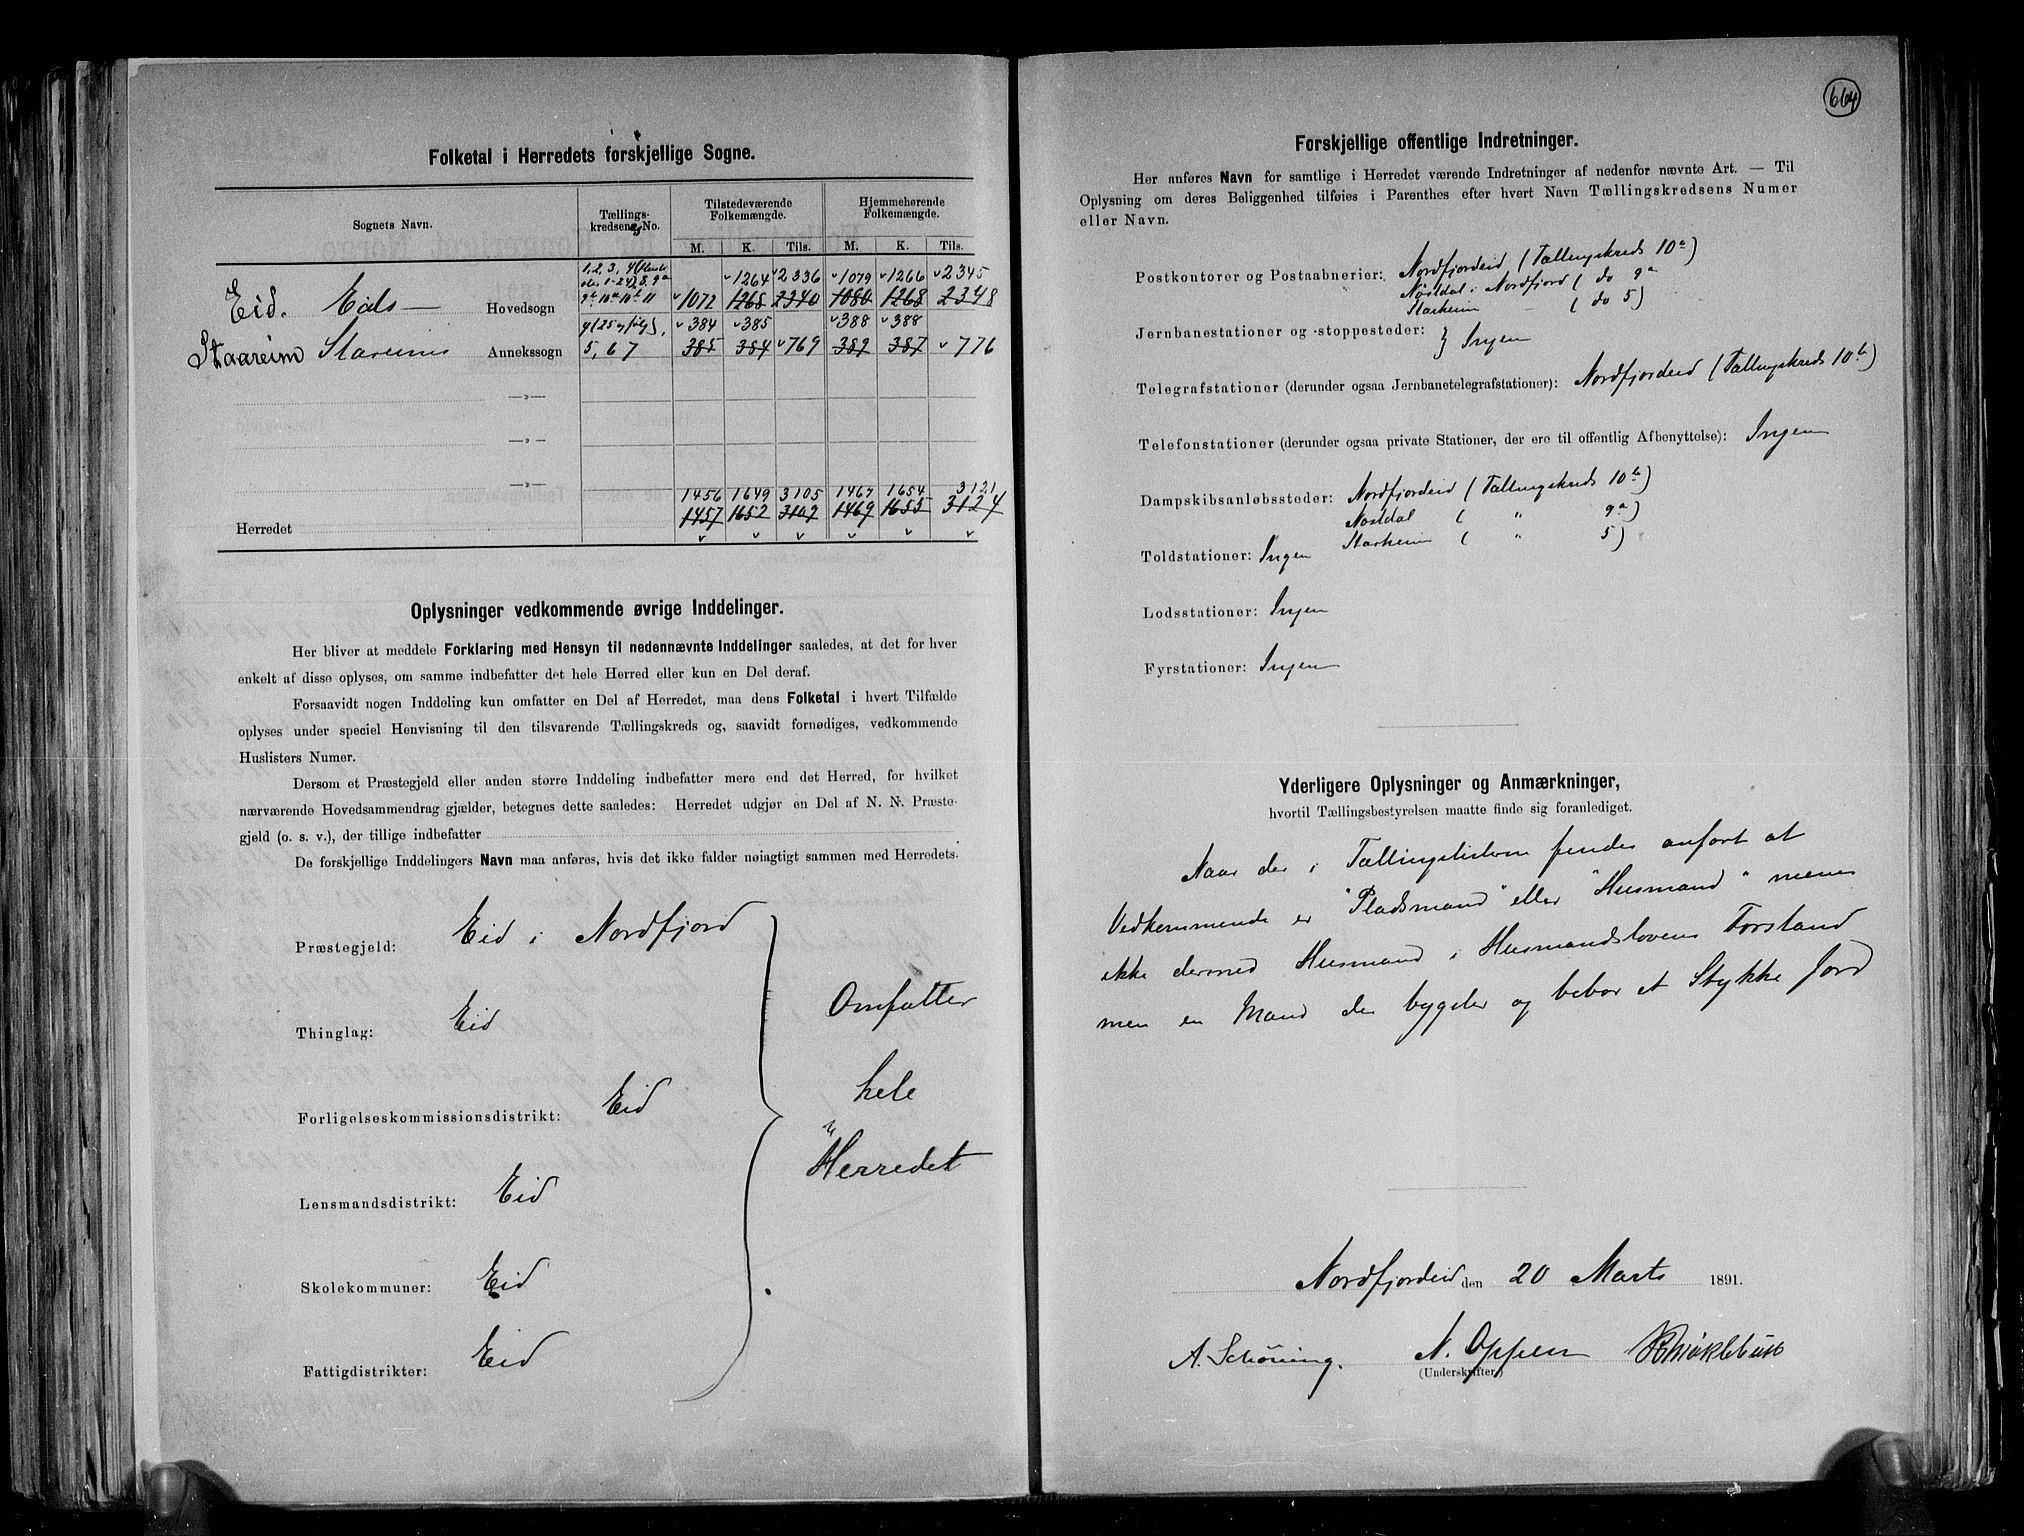 Folketal i Herredets forskjellige Sogne.
Sognets Navn. Tællings-kredsenes No. Tilstedeværende Folkemængde. Hjemmehørende Folkemængde.
M. K. Tils. M. K. Tils.
1, 2, 3, 4
1264 2336 1079 1266 2345
Eid. Eids — Hovedsogn 9b 10a 10b 11 1072 1268 2340 1080 1268 2348
384 385 388 388
Staareim Stareims Annekssogn 5, 6 7 385 384 769 389 387 776
—„—
—„—
—„—
1456 1649 3105 1467 1654 3121
Herredet 1457 1652 3109 1469 1655 3124
Oplysninger vedkommende øvrige Inddelinger.
Her bliver at meddele Forklaring med Hensyn til nedennævnte Inddelinger saaledes, at det for hver
enkelt af disse oplyses, om samme indbefatter det hele Herred eller kun en Del deraf.
Forsaavidt nogen Inddeling kun omfatter en Del af Herredet, maa dens Folketal i hvert Tilfælde
oplyses under speciel Henvisning til den tilsvarende Tællingskreds og, saavidt fornødiges, vedkommende
Huslisters Numer.
Dersom et Præstegjeld eller anden større Inddeling indbefatter mere end det Herred, for hvilket
nærværende Hovedsammendrag gjælder, betegnes dette saaledes: Herredet udgjør en Del af N. N. Præste-
gjeld (o. s. v.), der tillige indbefatter
De forskjellige Inddelingers Navn maa anføres, hvis det ikke falder nøiagtigt sammen med Herredets.
Præstegjeld: Eid i Nordfjord
Thinglag: Eid
Omfatter
Forligelseskommissionsdistrikt: Eid
hele
Herredet
Lensmandsdistrikt: Eid
Skolekommuner: Eid
Fattigdistrikter: Eid
664
Forskjellige offentlige Indretninger.
Her anføres Navn for samtlige i Herredet værende Indretninger af nedenfor nævnte Art. — Til
Oplysning om deres Beliggenhed tilføies i Parenthes efter hvert Navn Tællingskredsens Numer
eller Navn.
Postkontorer og Postaabnerier: Nordfjordeid (Tællingskreds 10a)
Nøstdal i Nordfjord ( do 9a
Starheim — ( do 5)
Jernbanestationer og -stoppesteder: } Ingen
Telegrafstationer (derunder ogsaa Jernbanetelegrafstationer): Nordfjordeid (Tællingskreds 10b)
Telefonstationer (derunder ogsaa private Stationer, der ere til offentlig Afbenyttelse): Ingen
Dampskibsanløbssteder: Nordfjordeid (Tællingskreds 10b)
Nøstdal ( " 9a)
Starheim ( " 5)
Toldstationer: Ingen
Lodsstationer: Ingen
Fyrstationer: Ingen
Yderligere Oplysninger og Anmærkninger,
hvortil Tællingsbestyrelsen maatte finde sig foranlediget.
Naar der i Tællingslisterne findes anført at
Vedkommende er "Pladsmand" eller "Husmand" menes
ikke dermed Husmand i Husmandslovens Forstand
men en Mand der bygsler og bebor et Stykke Jord
Nordfjordeid den 20 Marts 1891.
A. Schöning. N. Oppen
(Underskrifter.)